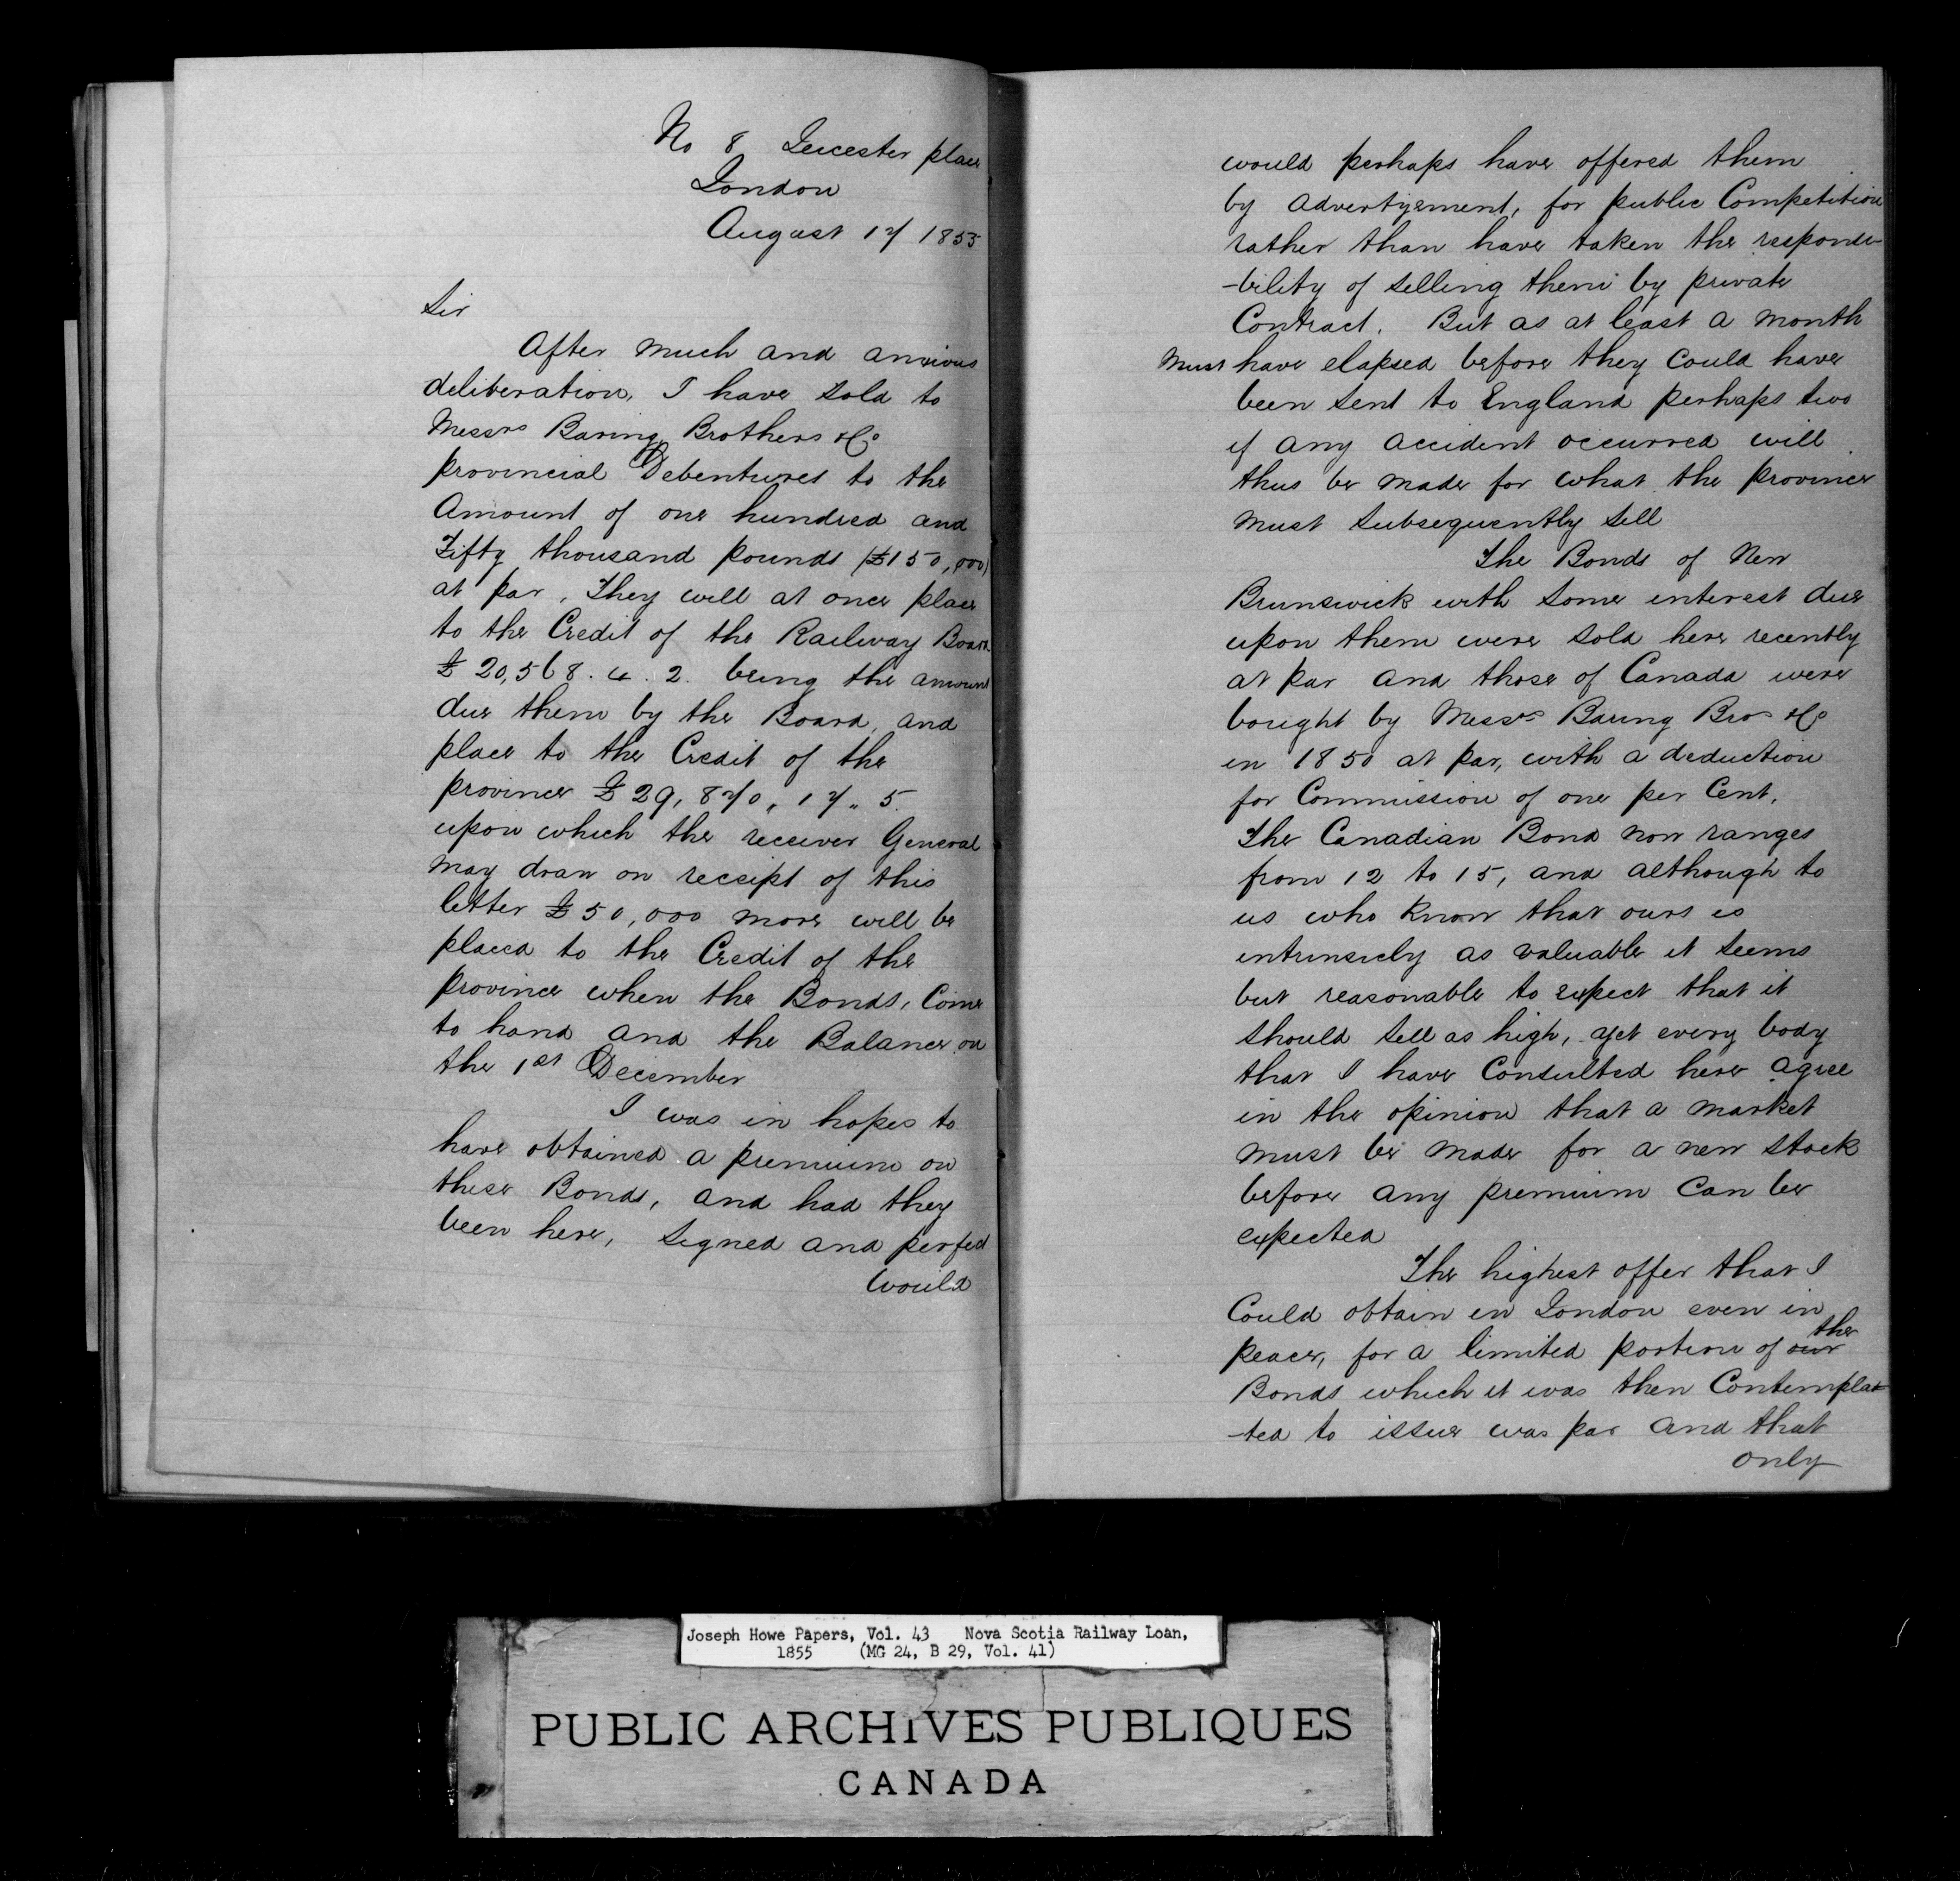 No 8 Leicester place
London
August 17 1855
Sir
After much and anxious
deliberation, I have sold to
Messrs Baring Brothers & Co
provincial Debentures to the
Amount of one hundred and
Fifty thousand pounds (£150,000)
at par, They will at once place
to the Credit of the Railway Board
£20,568. 4. 2. being the amount
due them by the Board, and
place to the Credit of the
province £29,870, 17, 5.
upon which the receiver General
may draw on receipt of this
letter £50,000 more will be
placed to the Credit of the
province when the Bonds, Come
to hand and the Balance on
the 1st December
I was in hopes to
have obtained a premium on
these Bonds, and had they
been here, signed and perfect
would
would perhaps have offered them
by advertysement, for public Competition
rather than have taken the responsi-
-bility of selling them by private
Contract. But as at least a month
Must have elapsed before they could have
been sent to England perhaps two
if any accident occurred will
thus be made for what the province
must subsequently sell
The Bonds of New
Brunswick with some interest due
upon them were sold here recently
at par and those of Canada were
bought by Messrs Baring Bros & Co
in 1850 at par, with a deduction
for Commission of one per Cent.
The Canadian Bond now ranges
from 12 to 15, and although to
us who know that ours is
intrinsicly as valuable it seems
but reasonable to expect that it
should sell as high, yet every body
that I have Consulted here agree
in the opinion that a market
must be made for a new stock
before any premium Can be
expected
The highest offer that I
Could obtain in London even in
peace, for a limited portion of our the
Bonds which it was then Contempla-
-ted to issue was par and that
only
Joseph Howe Papers, Vol. 43 Nova Scotia Railway Loan,
1855 (MG 24, B 29, Vol. 41)
PUBLIC ARCHIVES PUBLIQUES
CANADA